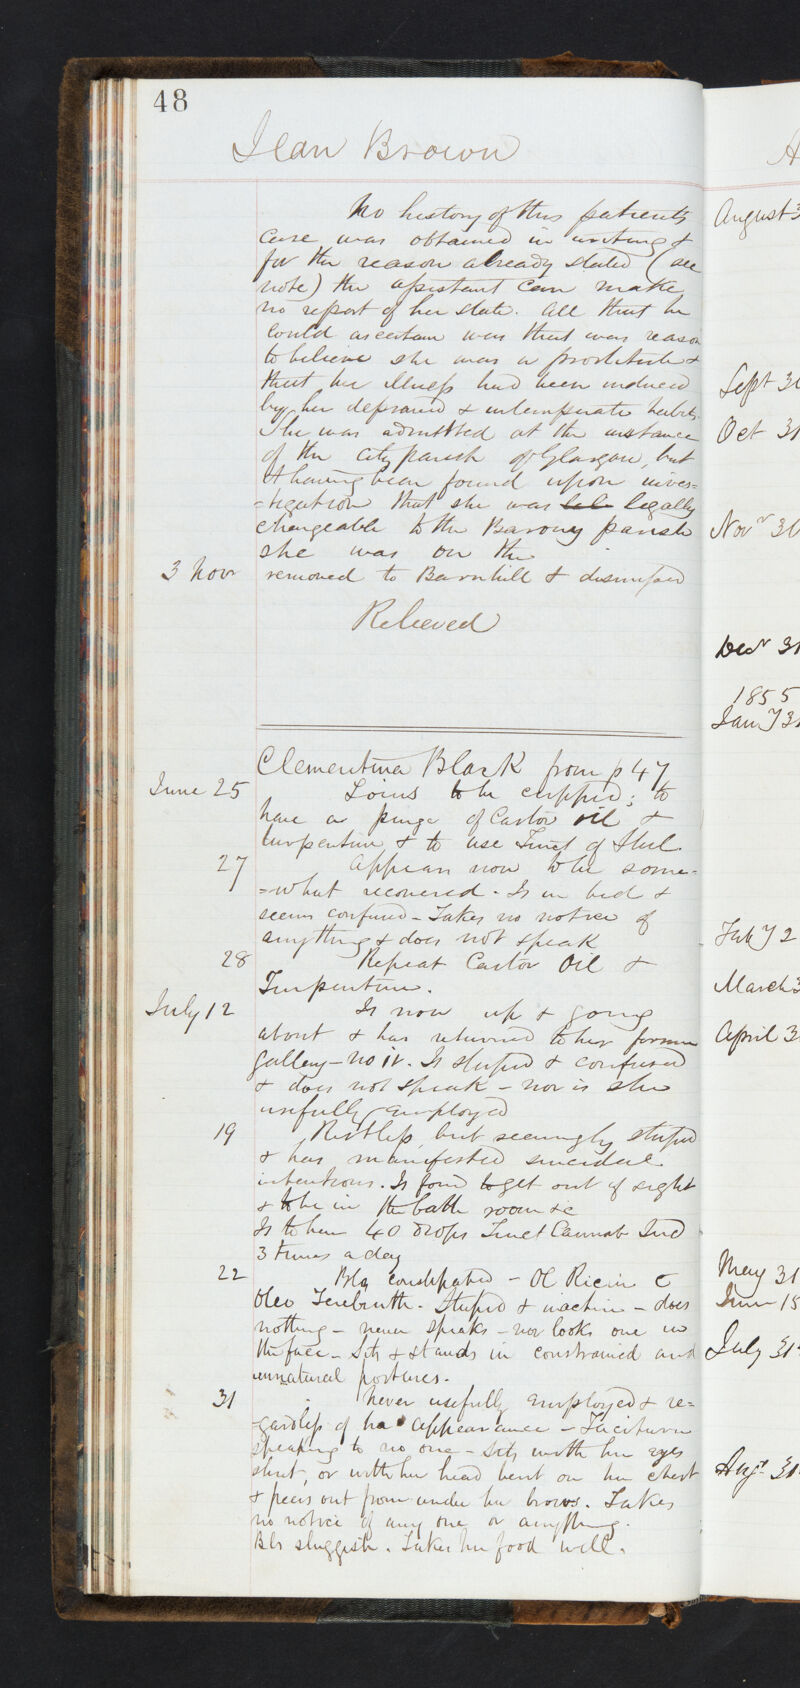 48
Jean Brown
No history of this patients
case was obtained in writing &
for the reason already stated (see
note) the assistant can make
no report of her state. All that he
could ascertain was that was reason
to believe she was a prostitute &
that her illness had been induced
by her depraved & intemperate habits.
She was admitted at the instance
of the City parish of Glasgow, but
it having been found upon inves=
=tigation that she was legally
chargeable to the Barony parish
she was on the
3 Novr removed to Barnhill & dismissed
Relieved
Clementina Black from p 47
June 25 Loins to be cupped; to
have a purge of Castor oil &
turpentine & to use Tinct of Steel.
27 Appears now to be some=
=what recovered. Is in bed &
seems confused - Takes no notice of
anything & does not speak
28 Repeat Castor Oil &
Turpentine.
July 12 Is now up & going
about & has returned to her former
Gallery - No Is stupid & confused
& does not speak - nor is she
usefully employed
19 Restless but seemingly stupid
& has manifested suicidal
intentions. Is fond to get out of sight
& to be in the bath room &c
Is to have 40 drops Tinct Cannab Ind
3 times a day
22 Bls constipated - Ol Ricin c
Oleo Terebinth. Stupid & inactive - does
nothing - never speaks - nor looks one in
the face - Sits & stands in constrained and
unnatural postures.
31 Never usefully employed & re=
=gardless of her appearance - Taciturn
speaking to no one - sits with her eyes
shut, or with her head bent on her chest
& peers out from under her brows. Takes
no notice of any one or anything.
Bls sluggish. Takes her food well.
A
August 3
Sept 30
Oct 31
Novr 30
Decr 31
1855
Jany 31
Feby 2
March 3
April 3
May 31
June 15
July 31
Augt 31